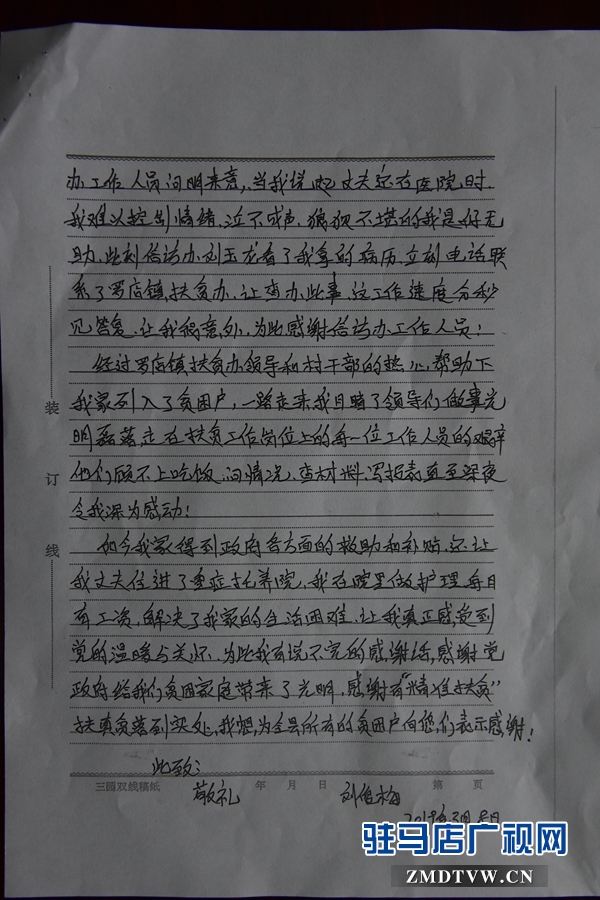 办工作人员问明来意,当我说起丈夫还在医院时,
我难以控制情绪,泣不成声,狼狈不堪的我是好无
助,此刻信访办刘玉龙看了我拿的病历,立刻电话联
系了罗店镇扶贫办,让查办此事,这工作速度分秒
见答复,让我稍意外,为此感谢信访办工作人员!
经过罗店镇扶贫办领导和村干部的热心帮助下
我家列入了贫困户,一路走来我目睹了领导们做事光
明磊落,走在扶贫工作岗位上的每一位工作人员的艰辛
他们顾不上吃饭,问情况,查材料,写报表直至深夜
令我深为感动!
如今我家得到政府各方面的救助和补贴,还让
我丈夫住进了重症托养院,我在院里做护理,每月
有工资,解决了我家的生活困难,让我真正感受到
党的温暖与关怀,为此我有说不完的感谢话,感谢党
政府给我们贫困家庭带来了光明,感谢有“精准扶贫”
扶真贫落到实处,我想,为全县所有的贫困户向您们表示感谢!
此致:
敬礼
刘俊梅
三圆双线稿纸 年 月 日 第 页
装
订
线
驻马店广视网
ZMDTVW.CN